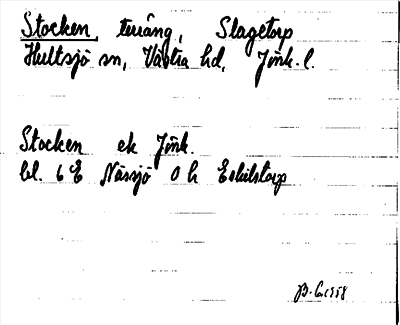 Stocken, terräng, Slagetorp
Hultsjö sn, Västra hd, Jönk. l.
Stocken ek Jönk.
bl. 6E Nässjö 0 h Eskilstorp
1958